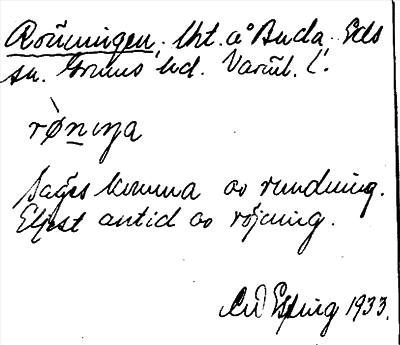 Rönningen, lht. å Buda, Eds
sn. Grums hd. Värml. l.
rø̀nıŋa
Sages komma av rundning.
Eljest antid av röjning.
Esping 1933.